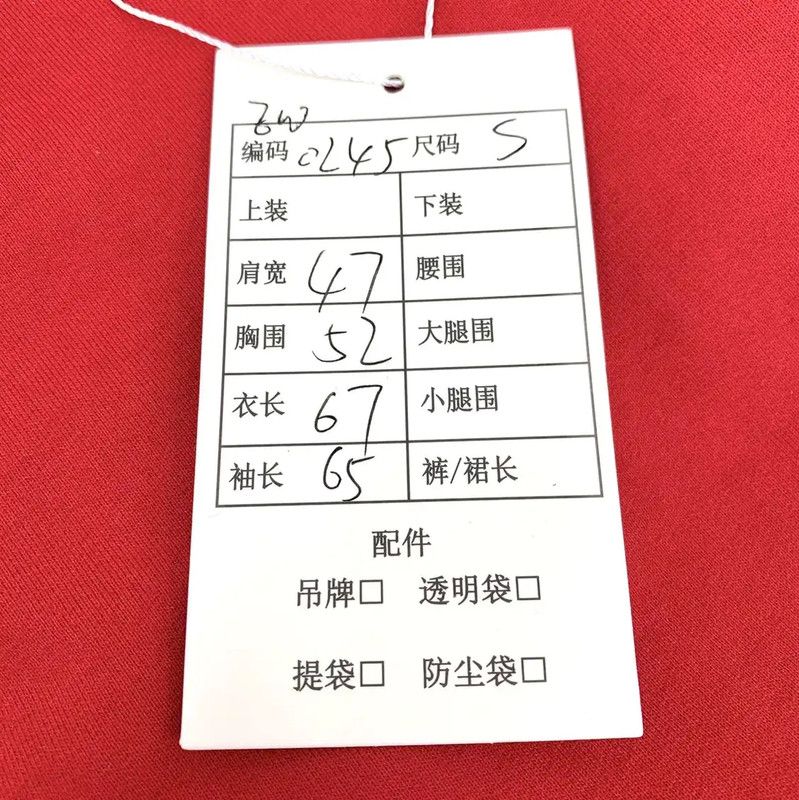 编码 0245 尺码 S
上装 下装
肩宽 47 腰围
胸围 52 大腿围
衣长 67 小腿围
袖长 65 裤/裙长
配件
吊牌□ 透明袋□
提袋□ 防尘袋□